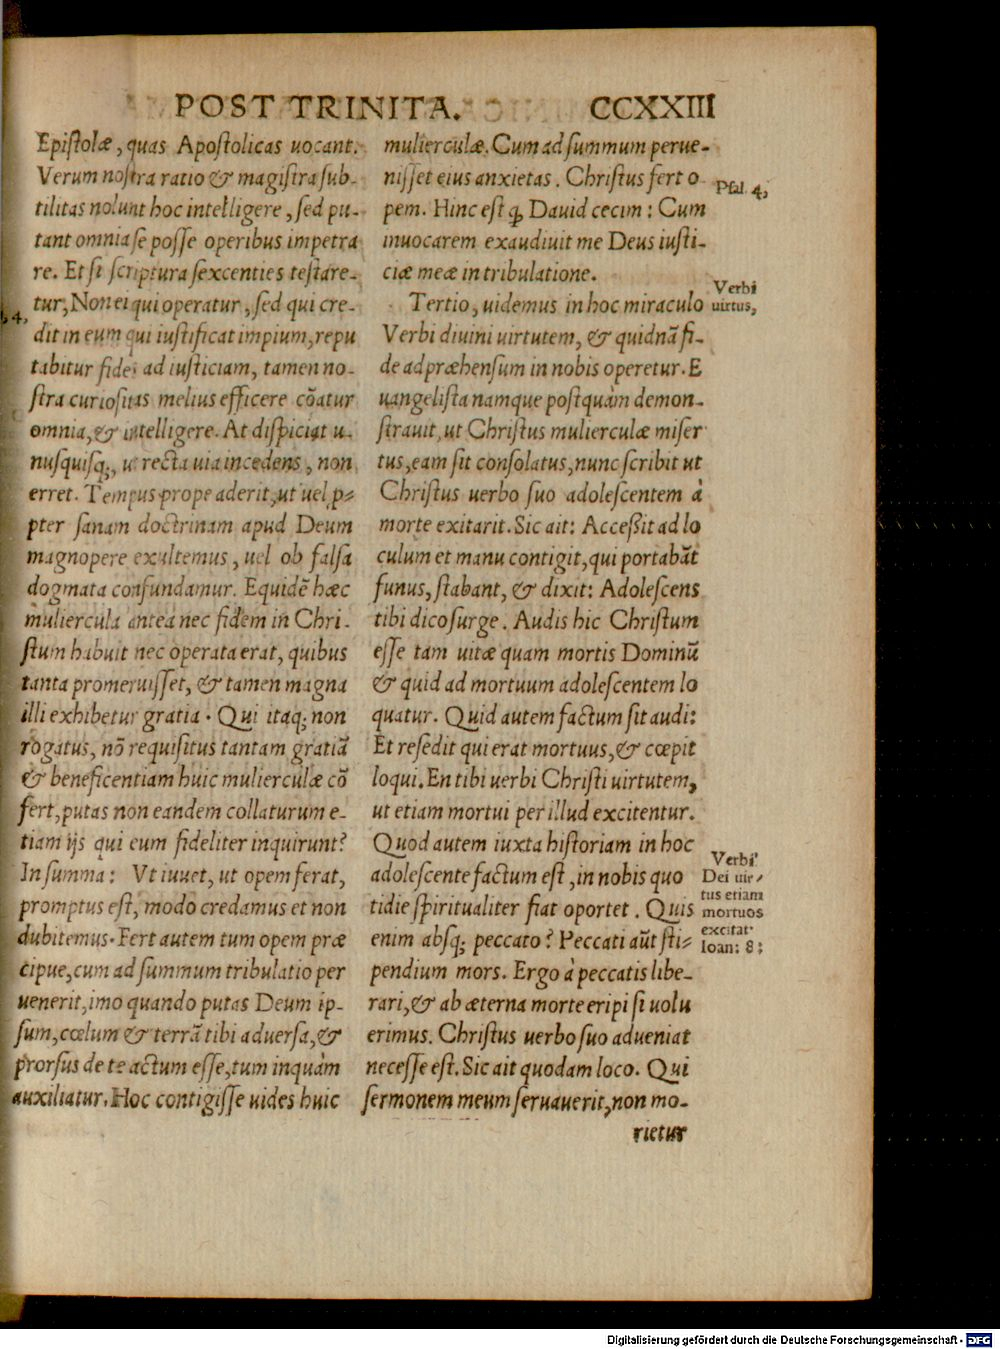 POST TRINITA. CCXXIII
Epiſtolæ, quas Apoſtolicas uocant.
Verum noſtra ratio & magiſtra ſub-
tilitas nolunt hoc intelligere, ſed pu-
tant omnia ſe poſſe operibus impetra
re. Et ſi ſcriptura ſexcenties teſtare-
tur, Non ei qui operatur, ſed qui cre-
dit in eum qui iuſtificat impium, repu
tabitur fides ad iuſticiam, tamen no-
ſtra curioſitas melius efficere cõatur
omnia, & intelligere. At diſpiciat u-
nuſquiſq;, ut recta uia incedens, non
erret. Tempus prope aderit, ut uel ꝓ-
pter ſanam doctrinam apud Deum
magnopere exultemus, uel ob falſa
dogmata confundamur. Equidẽ hæc
muliercula antea nec fidem in Chri-
ſtum habuit nec operata erat, quibus
tanta promeruiſſet, & tamen magna
illi exhibetur gratia. Qui itaq; non
rogatus, nõ requiſitus tantam gratiã
& beneficentiam huic mulierculæ cõ
fert, putas non eandem collaturum e-
tiam ijs qui eum fideliter inquirunt?
In ſumma: Vt iuuet, ut opem ferat,
promptus eſt, modo credamus et non
dubitemus. Fert autem tum opem præ
cipue, cum ad ſummum tribulatio per
uenerit, imo quando putas Deum ip-
ſum, cœlum & terrã tibi aduerſa, &
prorſus de te actum eſſe, tum inquàm
auxiliatur. Hoc contigiſſe uides huic
4,
mulierculæ. Cum ad ſummum perue-
niſſet eius anxietas. Chriſtus fert o
pem. Hinc eſt ꝙ Dauid cecin: Cum
inuocarem exaudiuit me Deus iuſti-
ciæ meæ in tribulatione.
Tertio, uidemus in hoc miraculo
Verbi diuini uirtutem, & quidnã fi-
de adpræhenſum in nobis operetur. E
uangeliſta namque poſtquàm demon-
ſtrauit, ut Chriſtus mulierculæ miſer
tus, eam ſit conſolatus, nunc ſcribit ut
Chriſtus uerbo ſuo adoleſcentem à
morte exitarit. Sic ait: Acceßit ad lo
culum et manu contigit, qui portabãt
funus, ſtabant, & dixit: Adoleſcens
tibi dico ſurge. Audis hic Chriſtum
eſſe tam uitæ quam mortis Dominũ
& quid ad mortuum adoleſcentem lo
quatur. Quid autem factum ſit audi:
Et reſedit qui erat mortuus, & cœpit
loqui. En tibi uerbi Chriſti uirtutem,
ut etiam mortui per illud excitentur.
Quod autem iuxta hiſtoriam in hoc
adoleſcente factum eſt, in nobis quo
tidie ſpiritualiter fiat oportet. Quis
enim abſq; peccato? Peccati aũt ſti-
pendium mors. Ergo à peccatis libe-
rari, & ab æterna morte eripi ſi uolu
erimus. Chriſtus uerbo ſuo adueniat
neceſſe eſt. Sic ait quodam loco. Qui
ſermonem meum ſeruauerit, non mo-
rietur
Pſal. 4,
Verbi
uirtus,
Verbi
Dei uir-
tus etiam
mortuos
excitat
Ioan: 8:
Digitalisierung gefördert durch die Deutsche Forschungsgemeinschaft - DFG